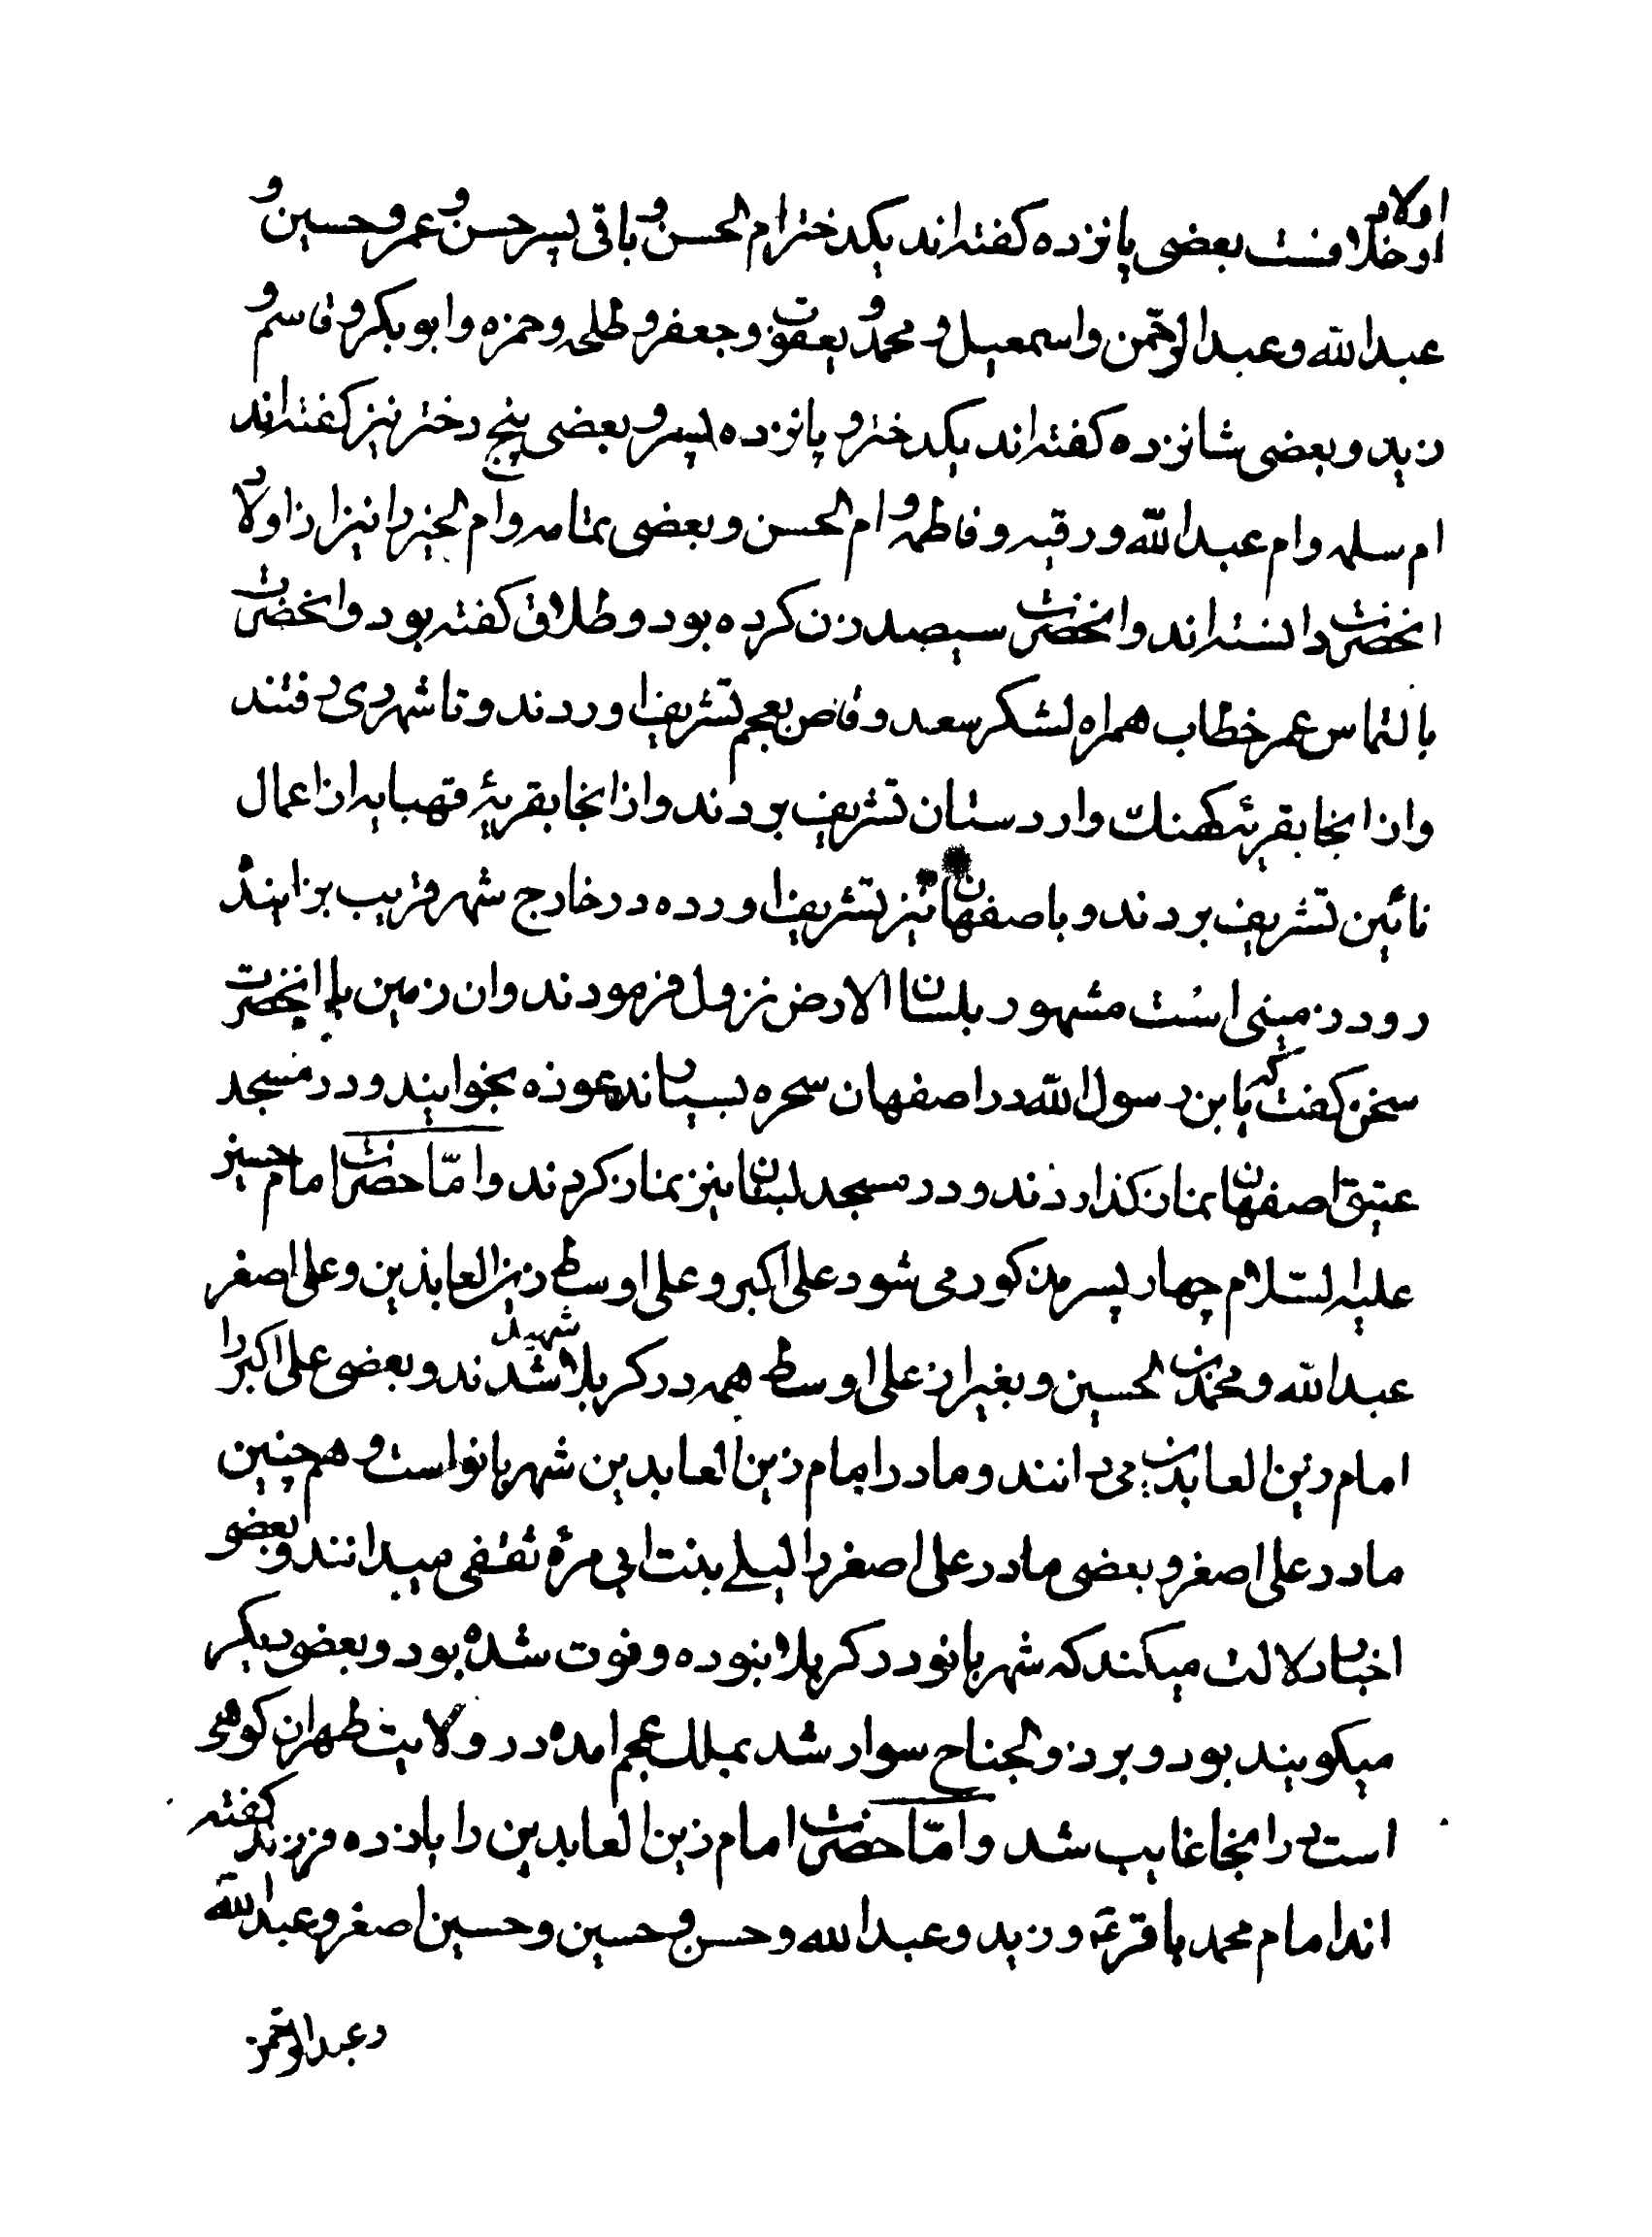 اولاد او خلافست بعضی پانزده کفته‌اند یکدختر ام الحسن و باقی پسر حسن و عمر و حسین و
عبدالله و عبدالرحمن و اسمعیل و محمد و یعقوب و جعفر و طلحه و حمزه و ابو بکر و قاسم و
زید و بعضی شانزده کفته‌اند یکدختر و پانزده پسر و بعضی پنج دختر نیز کفته‌اند
ام سلمه و ام عبدالله و رقیه و فاطمه و ام الحسن و بعضی تمامه و ام الخیر را نیز از اولاد
انحضرت دانسته‌اند و انحضرت سیصد زن کرده بود و طلاق کفته بود و انحضرت
بالتماس عمر خطاب همراه لشکر سعد وقاص بعجم تشریف اوردند و تا شهر ری رفتند
و از انجا بقریه کهنک و اردستان تشریف بردند و از انجا بقریهٔ قهپایه از اعمال
نائین تشریف بردند و باصفهان نیز تشریف اورده در خارج شهر قریب بزاینده
رود زمینی است مشهور بلسان الارض نزول فرمودند و ان زمین با انحضرت
سخن کفت که یا بن رسول الله در اصفهان سحره بسیارند عوذه بخوانید و در مسجد
عتیق اصفهان نماز کذاردند و در مسجد لبنان نیز نماز کردند و امّا حضرت امام حسین
علیه السّلام چهار پسر مذکور می شود علی اکبر و علی اوسط زین العابدین و علی اصغر
عبدالله و محمد بن الحسین و بغیر از علی اوسط همه در کربلا شهید شدند و بعضی علی اکبر را
امام زین العابدین می دانند و مادر امام زین العابدین شهربانو است و همچنین
مادر علی اصغر و بعضی مادر علی اصغر را لیلی بنت ابی مرّه ثقفی میدانند و بعضی
اخبار دلالت میکند که شهربانو در کربلا نبوده و فوت شده بود و بعضی دیکر
میکویند بود و بر ذوالجناح سوار شد بملک عجم امده در ولایت طهران کوهی
است در انجا غایب شد و امّا حضرت امام زین العابدین را پانزده فرزند کفته
اند امام محمد باقر ع و زید و عبدالله و حسن و حسین و حسین اصغر و عبدالله
و عبدالرحمن